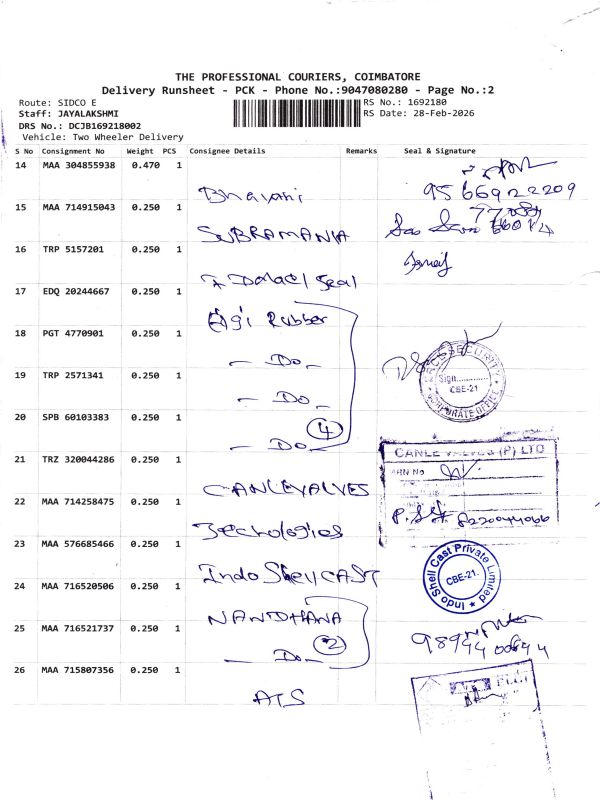 THE PROFESSIONAL COURIERS, COIMBATORE
Delivery Runsheet - PCK - Phone No.:9047080280 - Page No.:2
Route: SIDCO E
RS No.: 1692180
Staff: JAYALAKSHMI
RS Date: 28-Feb-2026
DRS No.: DCJB169218002
Vehicle: Two Wheeler Delivery
S No Consignment No Weight PCS Consignee Details Remarks Seal & Signature
14 MAA 304855938 0.470 1
Bhavani
9566922209
15 MAA 714915043 0.250 1
SUBRAMANIA
16 TRP 5157201 0.250 1
Seal
17 EDQ 20244667 0.250 1
Rubber
18 PGT 4770901 0.250 1
- Do -
19 TRP 2571341 0.250 1
- Do -
SECURITY
Sign............
CBE-21
CORPORATE OFFICE
20 SPB 60103383 0.250 1
- Do -
4
21 TRZ 320044286 0.250 1
CANLEVALVES
CANLE VALVES (P) LTD
8220044066
22 MAA 714258475 0.250 1
23 MAA 576685466 0.250 1
Indo Shell CAST
Indo Shell Cast Private Limited
CBE-21.
24 MAA 716520506 0.250 1
NANDHANA
25 MAA 716521737 0.250 1
- Do -
2
26 MAA 715807356 0.250 1
ATS